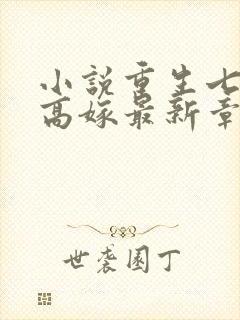 小说重生七
高嫁最新章
世袭园丁